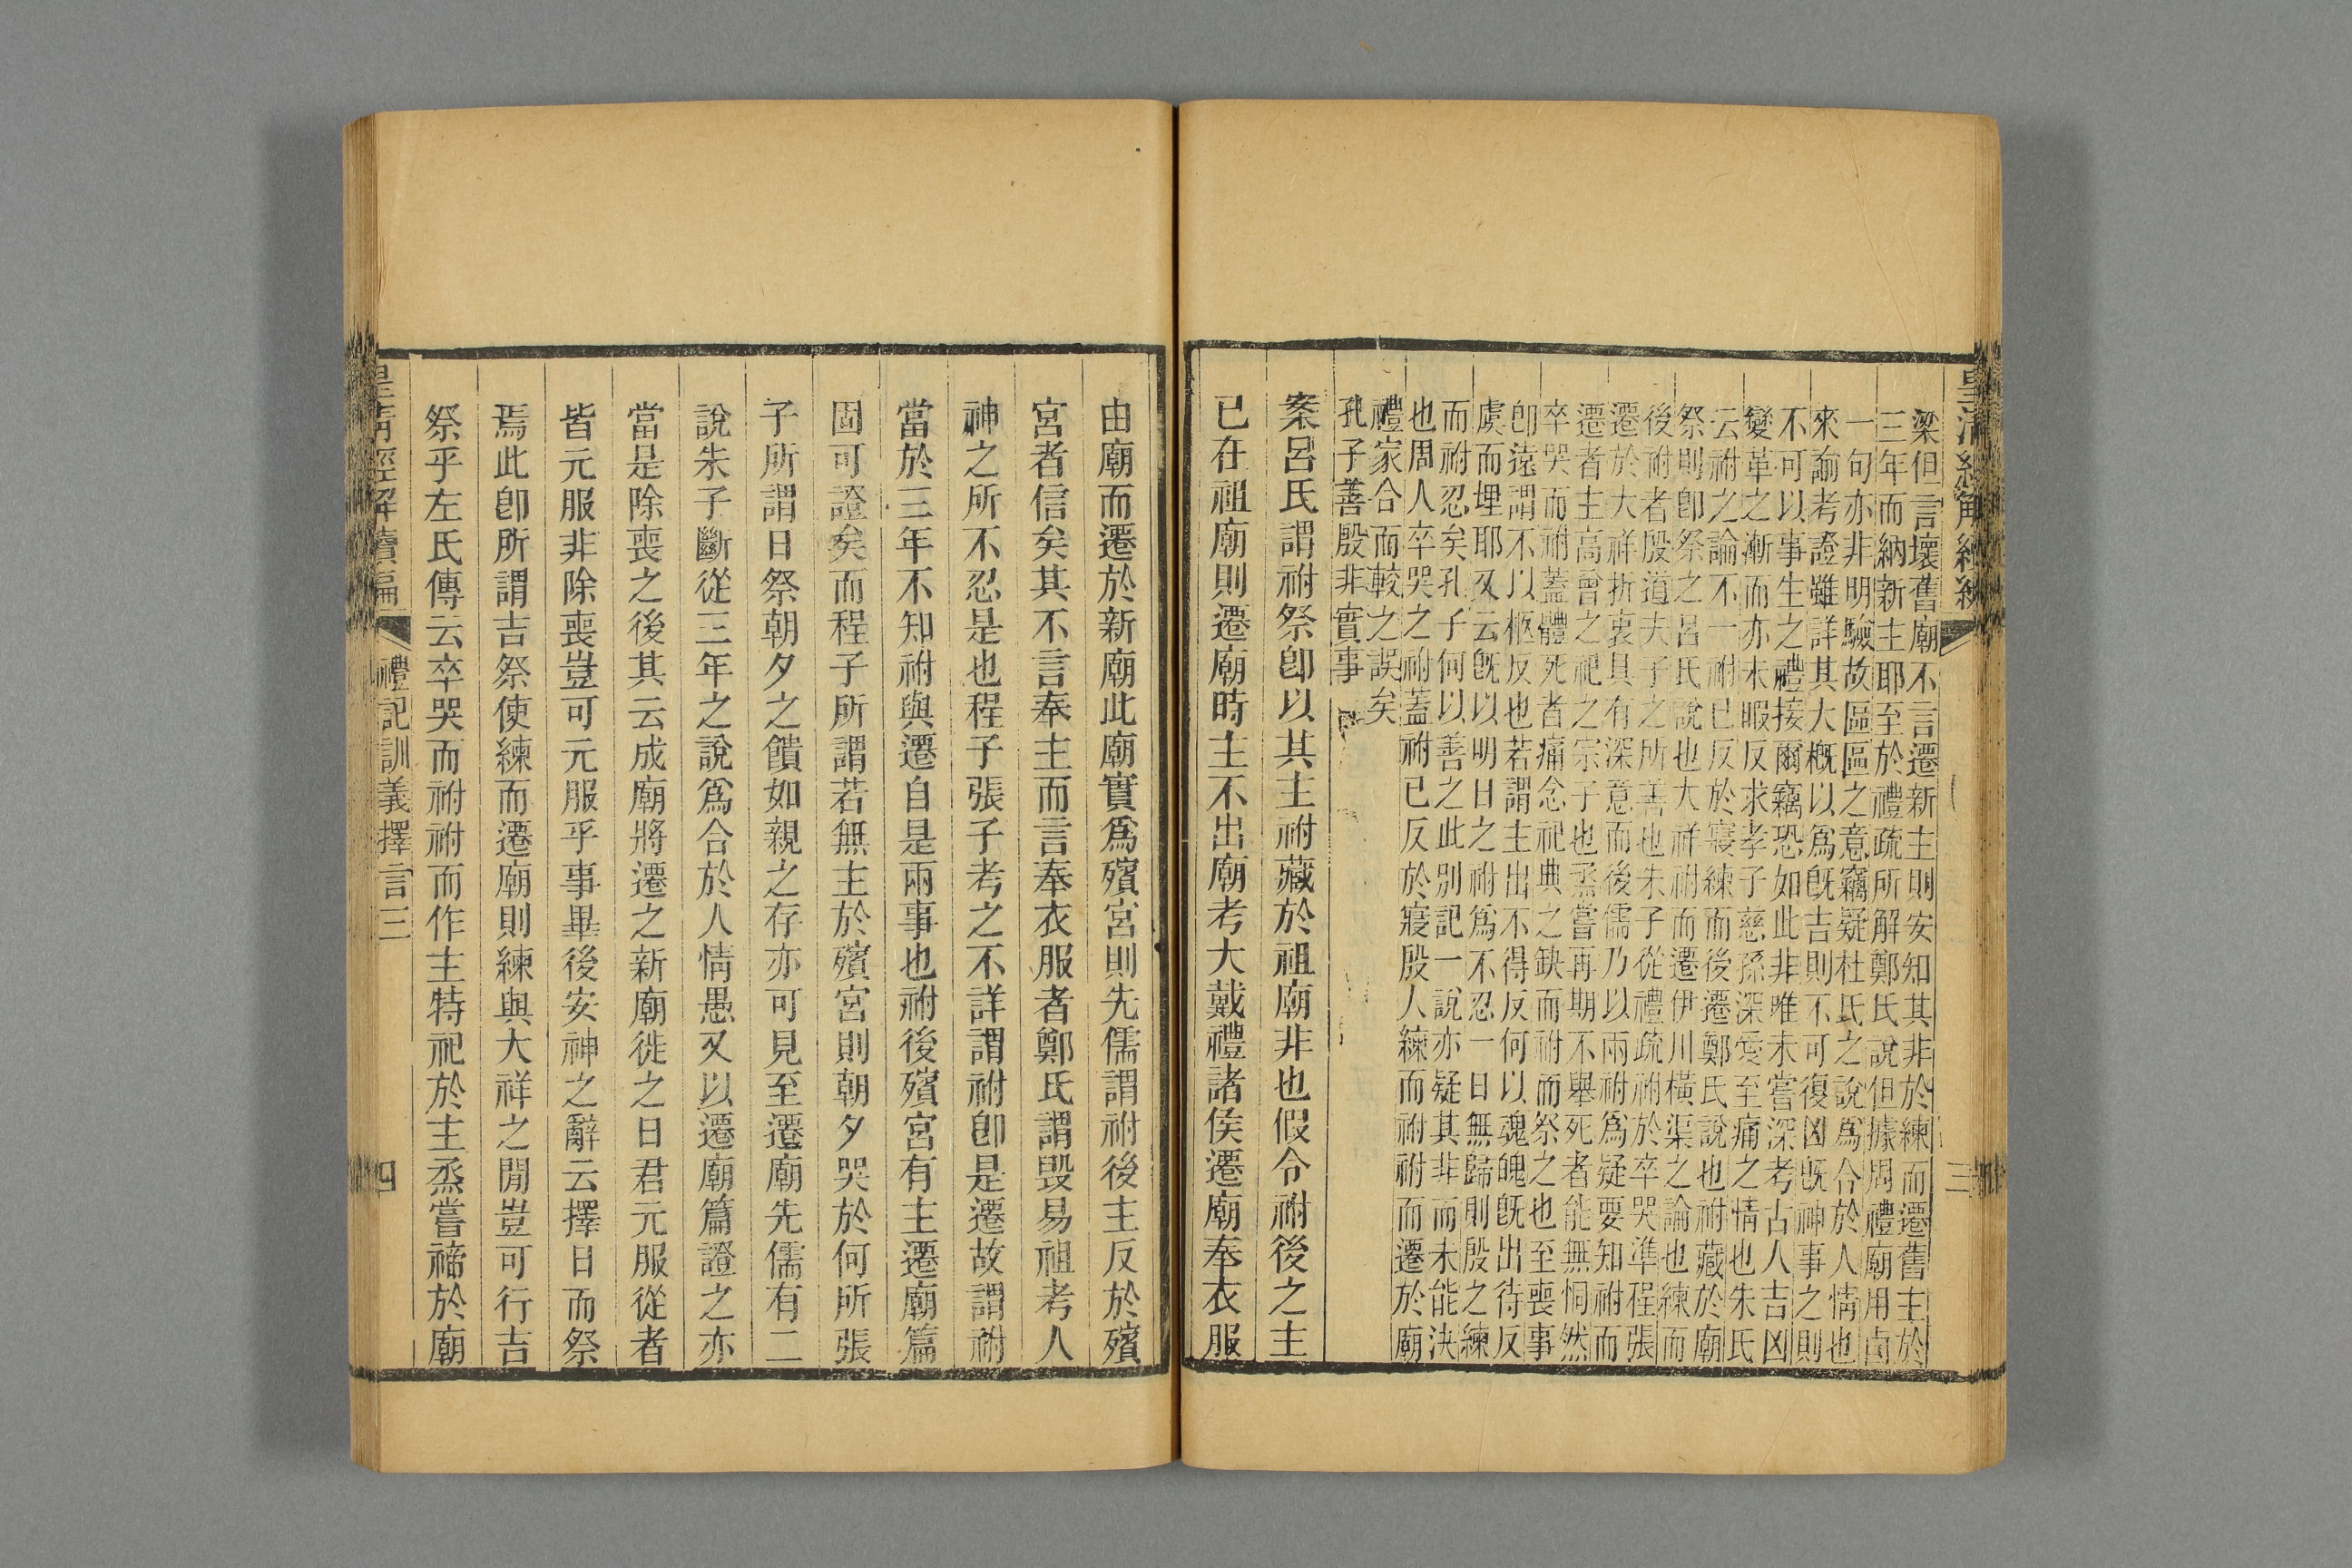 皇清經解續編
三
梁但言壞舊廟不言遷新主則安知其非於練而遷舊主於
三年而納新主耶至於禮疏所解鄭氏說但據周禮廟用卣
一句亦非明驗故區區之意竊疑杜氏之說爲合於人情也
來諭考證雖詳其大概以爲旣吉則不可復凶旣神事之則
不可以事生之禮接爾竊恐如此非唯未嘗深考古人吉凶
變革之漸而亦未暇反求孝子慈孫深愛至痛之情也朱氏
云祔之論不一祔已反於寢練而後遷鄭氏說也祔藏於廟
祭則卽祭之呂氏說也大祥祔而遷伊川橫渠之論也練而
後祔者殷道夫子之所善也朱子從禮疏祔於卒哭準程張
遷於大祥折衷具有深意而後儒乃以兩祔爲疑要知祔而
遷者主高曾之祀之宗子也烝嘗再期不舉死者能無恫然
卒哭而祔蓋體死者痛念祀典之缺而祔而祭之也至喪事
卽遠謂不以柩反也若謂主出不得反何以魂魄旣出待反
虞而埋耶又云旣以明日之祔爲不忍一日無歸則殷之練
而祔忍矣孔子何以善之此別記一說亦疑其非而未能決
也周人卒哭之祔蓋祔已反於寢殷人練而祔祔而遷於廟
禮家合而較之誤矣
孔子善殷非實事
案呂氏謂祔祭卽以其主祔藏於祖廟非也假令祔後之主
已在祖廟則遷廟時主不出廟考大戴禮諸侯遷廟奉衣服
由廟而遷於新廟此廟實爲殯宮則先儒謂祔後主反於殯
宮者信矣其不言奉主而言奉衣服者鄭氏謂毁易祖考人
神之所不忍是也程子張子考之不詳謂祔卽是遷故謂祔
當於三年不知祔與遷自是兩事也祔後殯宮有主遷廟篇
固可證矣而程子所謂若無主於殯宮則朝夕哭於何所張
子所謂日祭朝夕之饋如親之存亦可見至遷廟先儒有二
說朱子斷從三年之說爲合於人情愚又以遷廟篇證之亦
當是除喪之後其云成廟將遷之新廟徙之日君元服從者
皆元服非除喪豈可元服乎事畢後安神之辭云擇日而祭
焉此卽所謂吉祭使練而遷廟則練與大祥之閒豈可行吉
祭乎左氏傳云卒哭而祔祔而作主特祀於主烝嘗禘於廟
皇清經解續編
禮記訓義擇言三
四